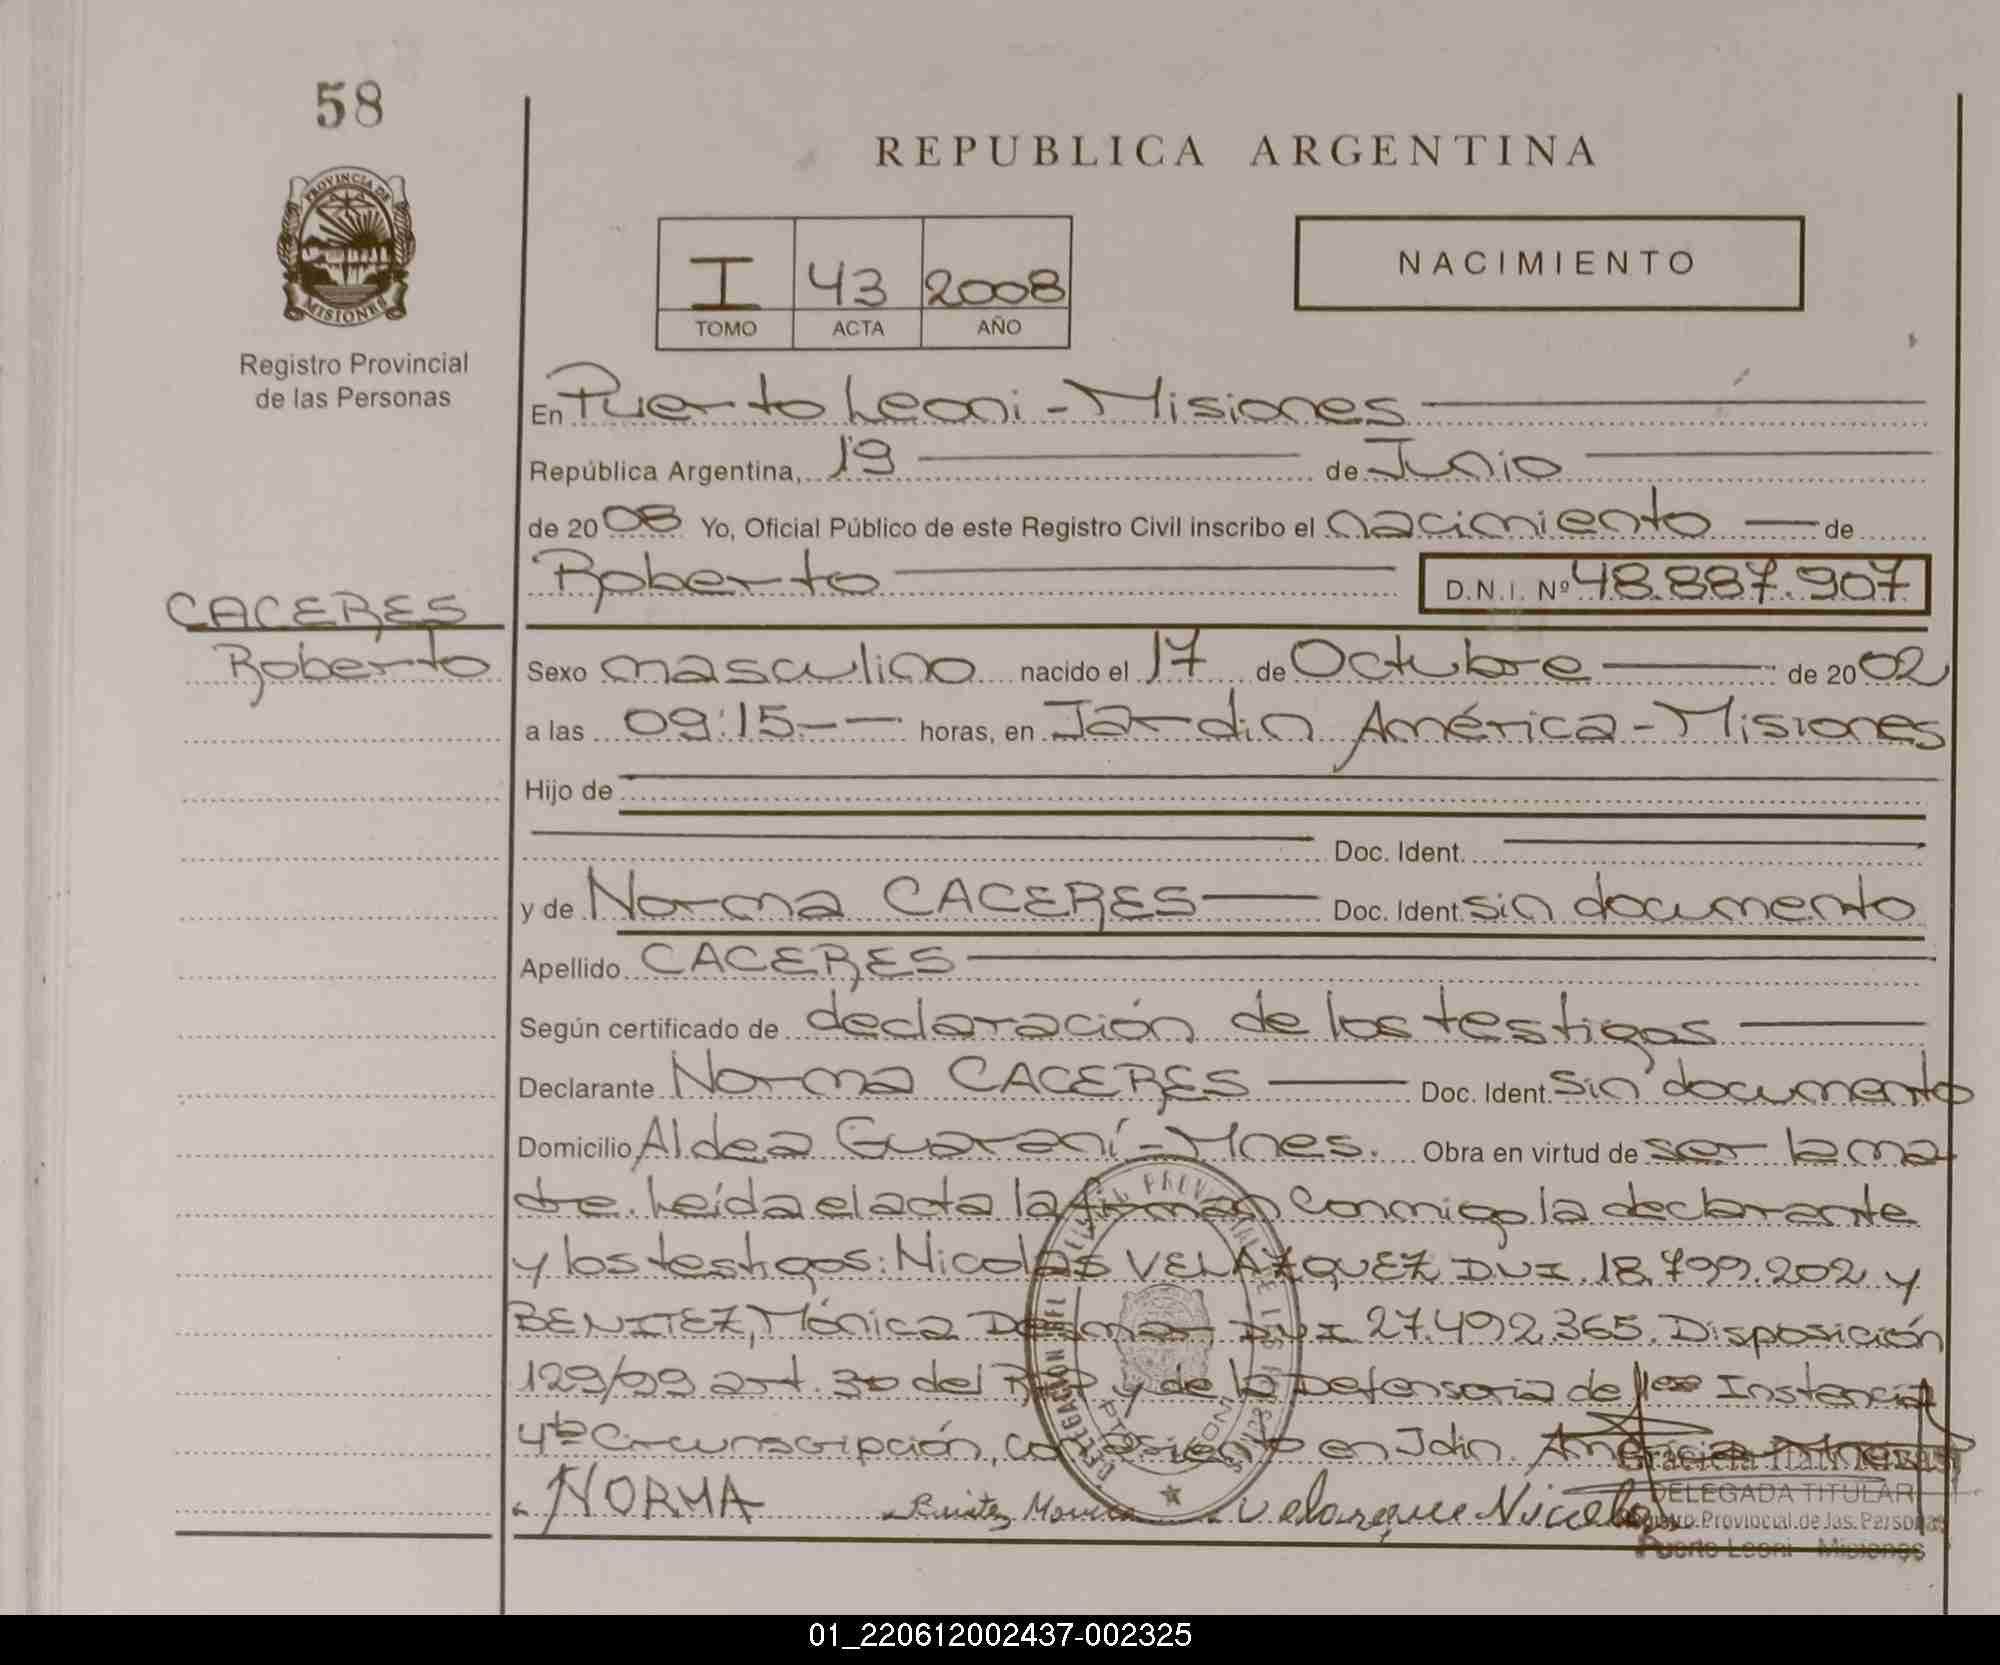 58
REPUBLICA ARGENTINA
PROVINCIA DE
MISIONES
Registro Provincial
de las Personas
I 43 2008
TOMO ACTA AÑO
NACIMIENTO
En Puerto Leoni - Misiones
República Argentina, 19 de Junio
de 2008 Yo, Oficial Público de este Registro Civil inscribo el nacimiento de
Roberto D.N.I. Nº 48.887.907
CACERES
Roberto
Sexo masculino nacido el 17 de Octubre de 2002
a las 09:15.- horas, en Jardin América - Misiones
Hijo de
Doc. Ident.
y de Norma CACERES Doc. Ident. sin documento
Apellido CACERES
Según certificado de declaración de los testigos
Declarante Norma CACERES Doc. Ident. sin documento
Domicilio Aldea Guaraní - Mnes. Obra en virtud de ser la ma
dre. Leída el acta la firman conmigo la declarante
y los testigos: Nicolas VELAZQUEZ DNI 18.799.202 y
BENITEZ, Mónica DNI 27.492.365. Disposición
129/99 art. 30 del y de la Defensoria de Instancia
4ta Circunscripción, con asiento en Jdin. América
NORMA Benitez Monica Velazquez Nicolas
DELEGADA TITULAR
Registro Provincial de las Personas
Puerto Leoni - Misiones
01_220612002437-002325